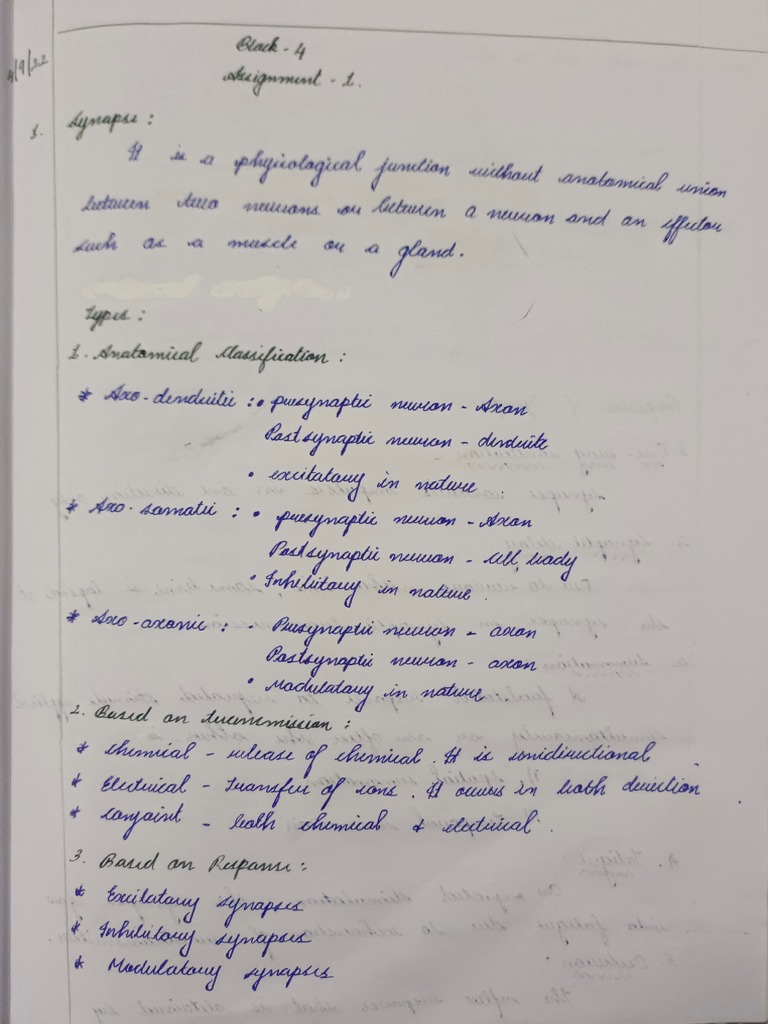 4/9/22
Block - 4
Assignment - 1.
1. Synapse :
It is a physiological junction without anatomical union
between two neurons or between a neuron and an effector
such as a muscle or a gland.
Types :
1. Anatomical Classification :
* Axo-dendritic : • presynaptic neuron - Axon
Postsynaptic neuron - dendrite
• excitatory in nature
* Axo-somatic : • presynaptic neuron - Axon
Postsynaptic neuron - cell body
• Inhibitory in nature
* Axo-axonic : • Presynaptic neuron - axon
Postsynaptic neuron - axon
• Modulatory in nature
2. Based on transmission :
* chemical - release of chemical. It is unidirectional
* Electrical - Transfer of ions. It occurs in both direction
* conjoint - both chemical & electrical.
3. Based on Response :
* Excitatory synapses
* Inhibitory synapses
* Modulatory synapses